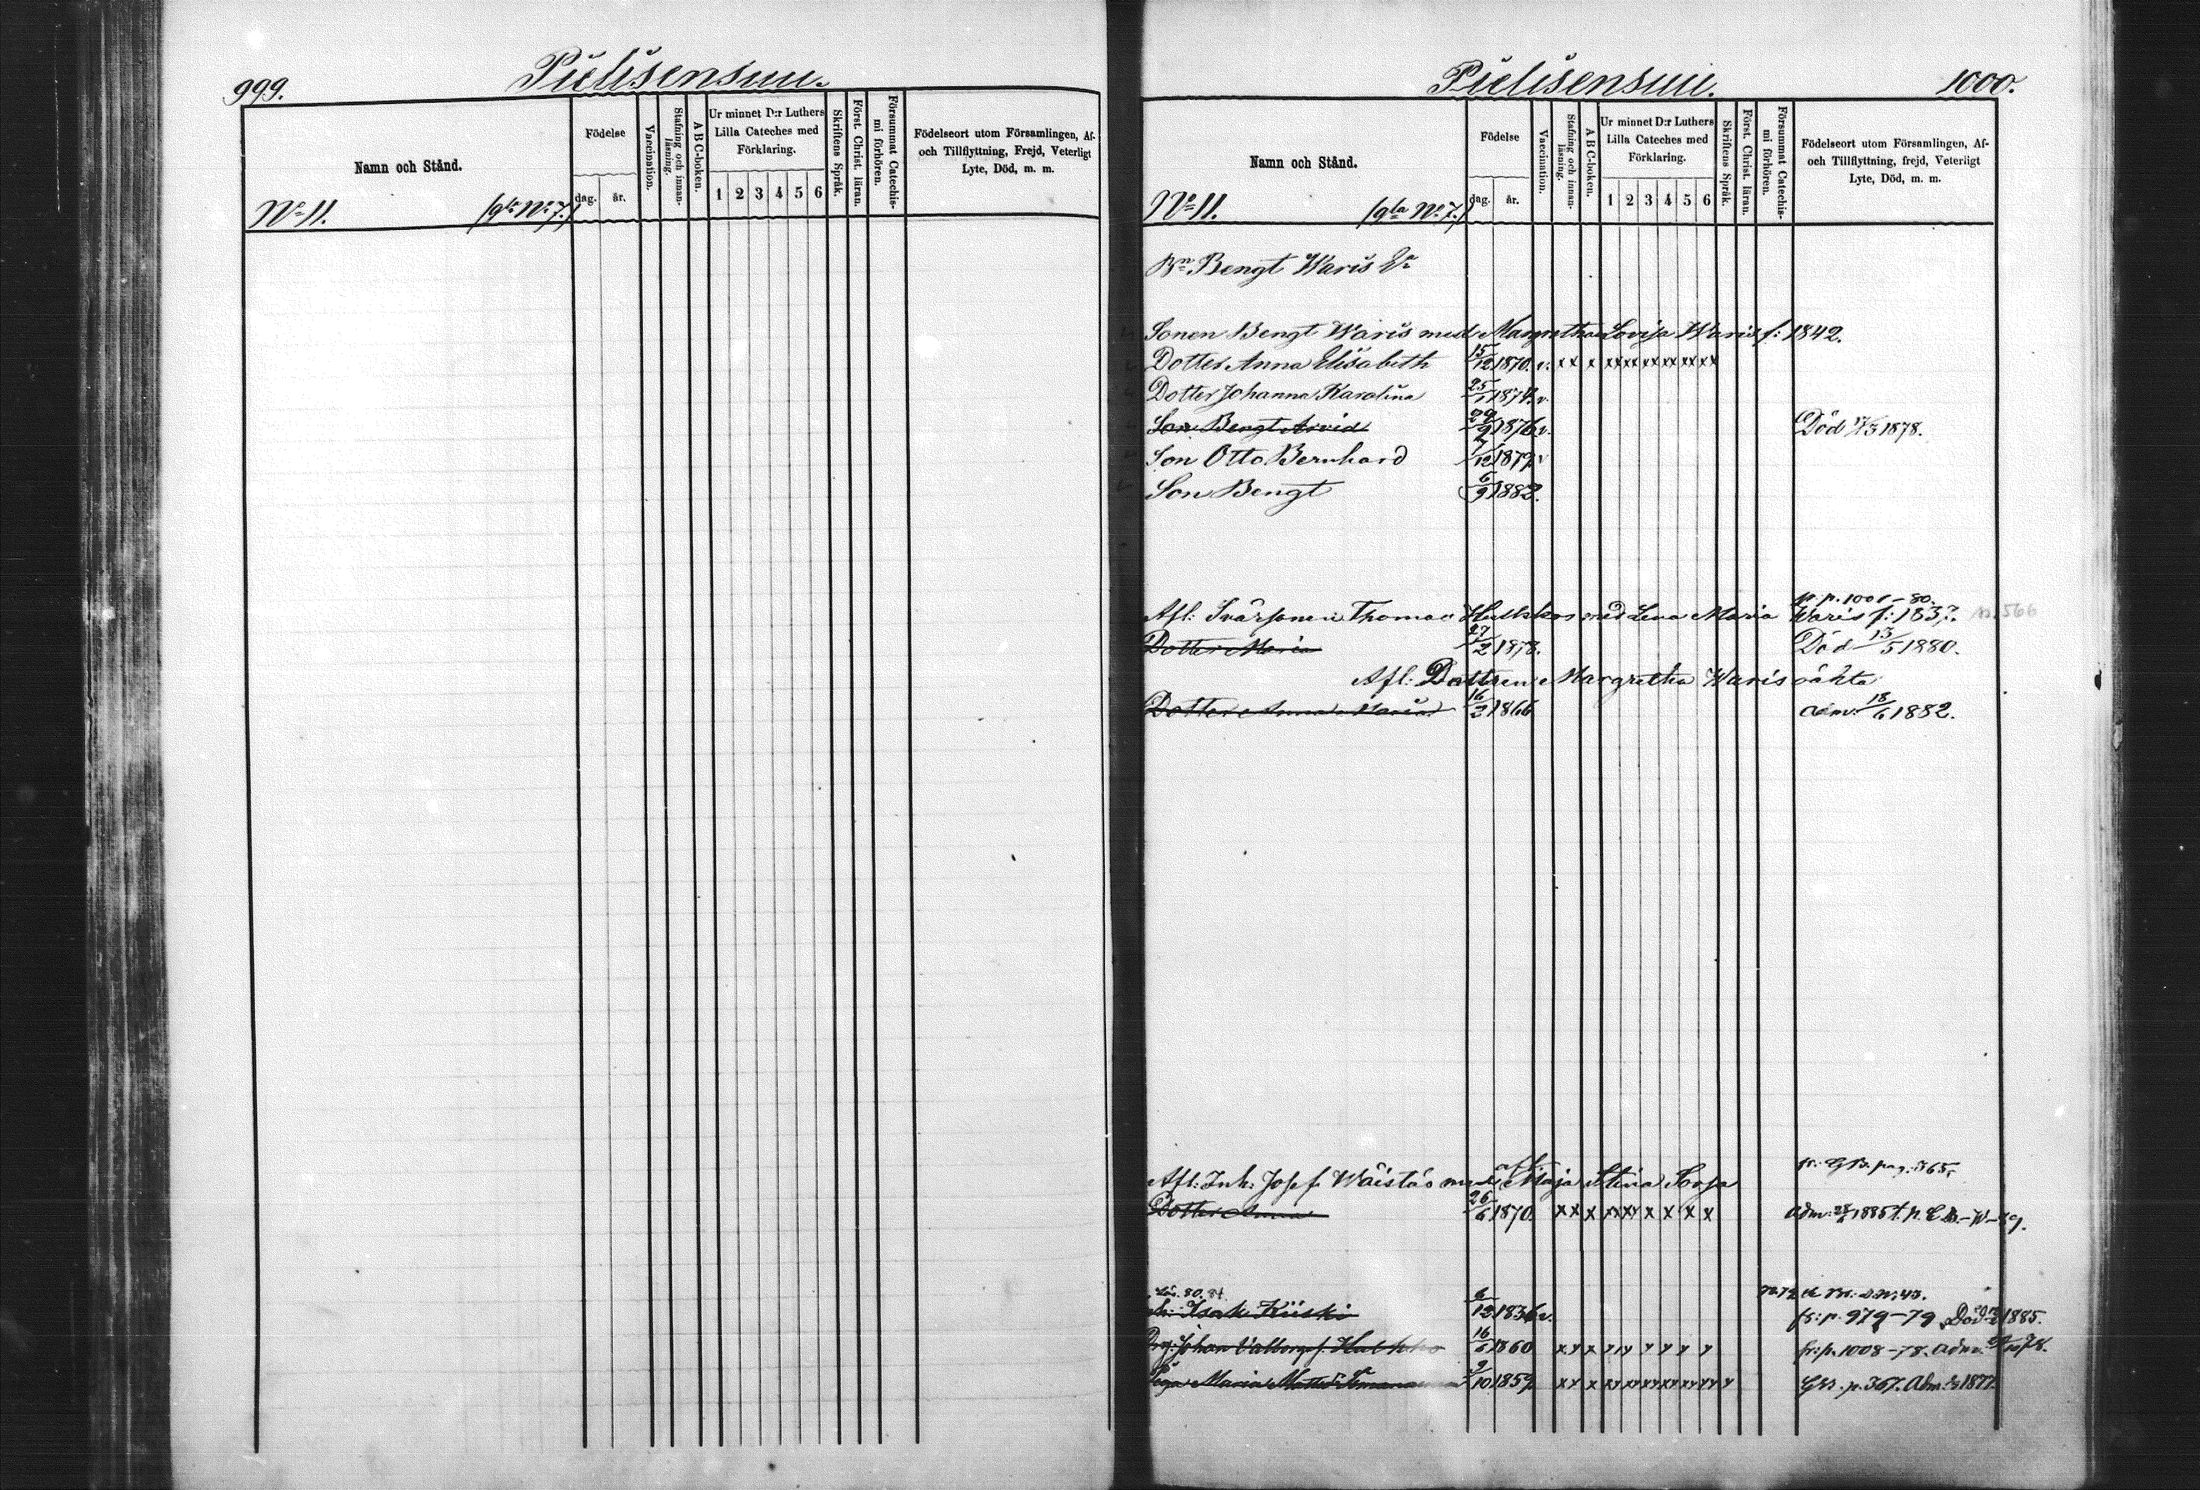 999.
Puhisensuu.
Namn och Stånd.
Födelse
dag.
år.
Vaccination.
Stafning och innanläsning.
A B C-boken.
Ur minnet D:r Luthers Lilla Cateches med Förklaring.
1 2 3 4 5 6
Skriftens Språk.
Först. Christ. läran.
Försummat Catechismi förhören.
Födelseort utom Församlingen, Af- och Tillflyttning, Frejd, Veterligt Lyte, Död, m. m.
No 11. (gla No 7.)
Puhisensuu.
1000.
Namn och Stånd.
Födelse
dag.
år.
Vaccination.
Stafning och innanläsning.
A B C-boken.
Ur minnet D:r Luthers Lilla Cateches med Förklaring.
1 2 3 4 5 6
Skriftens Språk.
Först. Christ. läran.
Försummat Catechismi förhören.
Födelseort utom Församlingen, Af- och Tillflyttning, frejd, Veterligt Lyte, Död, m. m.
No 11. (gla No 7.)
Bn Bengt Waris
Sonen Bengt Waris med Margretha Lovisa Waris f: 1842.
Dotter Anna Elisabeth 15/12 1870. v. xx x xx xx xx xx xx xx
Dotter Johanna Karolina 25/1 1874. v
Son Bengt Arvid 29/2 1876 v. Död 1878.
Son Otto Bernhard 7/12 1879 v
Son Bengt 6/9 1882.
p. 1001-80.
Afl. Thomas Hulkkos med Lena Maria Waris f: 183 n. 566
Dotter Maria 27/2 1878. Död 13/5 1880.
Afl: Dottren Margretha Waris oäkta
Dotter Anna Maria 16/2 1866 Adm. 18/6 1882.
Afl: Inh. Josef Wäistäs med Maja Stina
Dotter Anna 26/6 1870. xx x xx xx x x x x Adm. 1885
80. 84.
Isak Kiiski 6/12 1836 v. fr: p. 979-79 Död 1885.
Johan 16/6 1860 fr: p. 1008-78. Adm.
Maria 9/10 1859 p. 367. Adm. 1877.